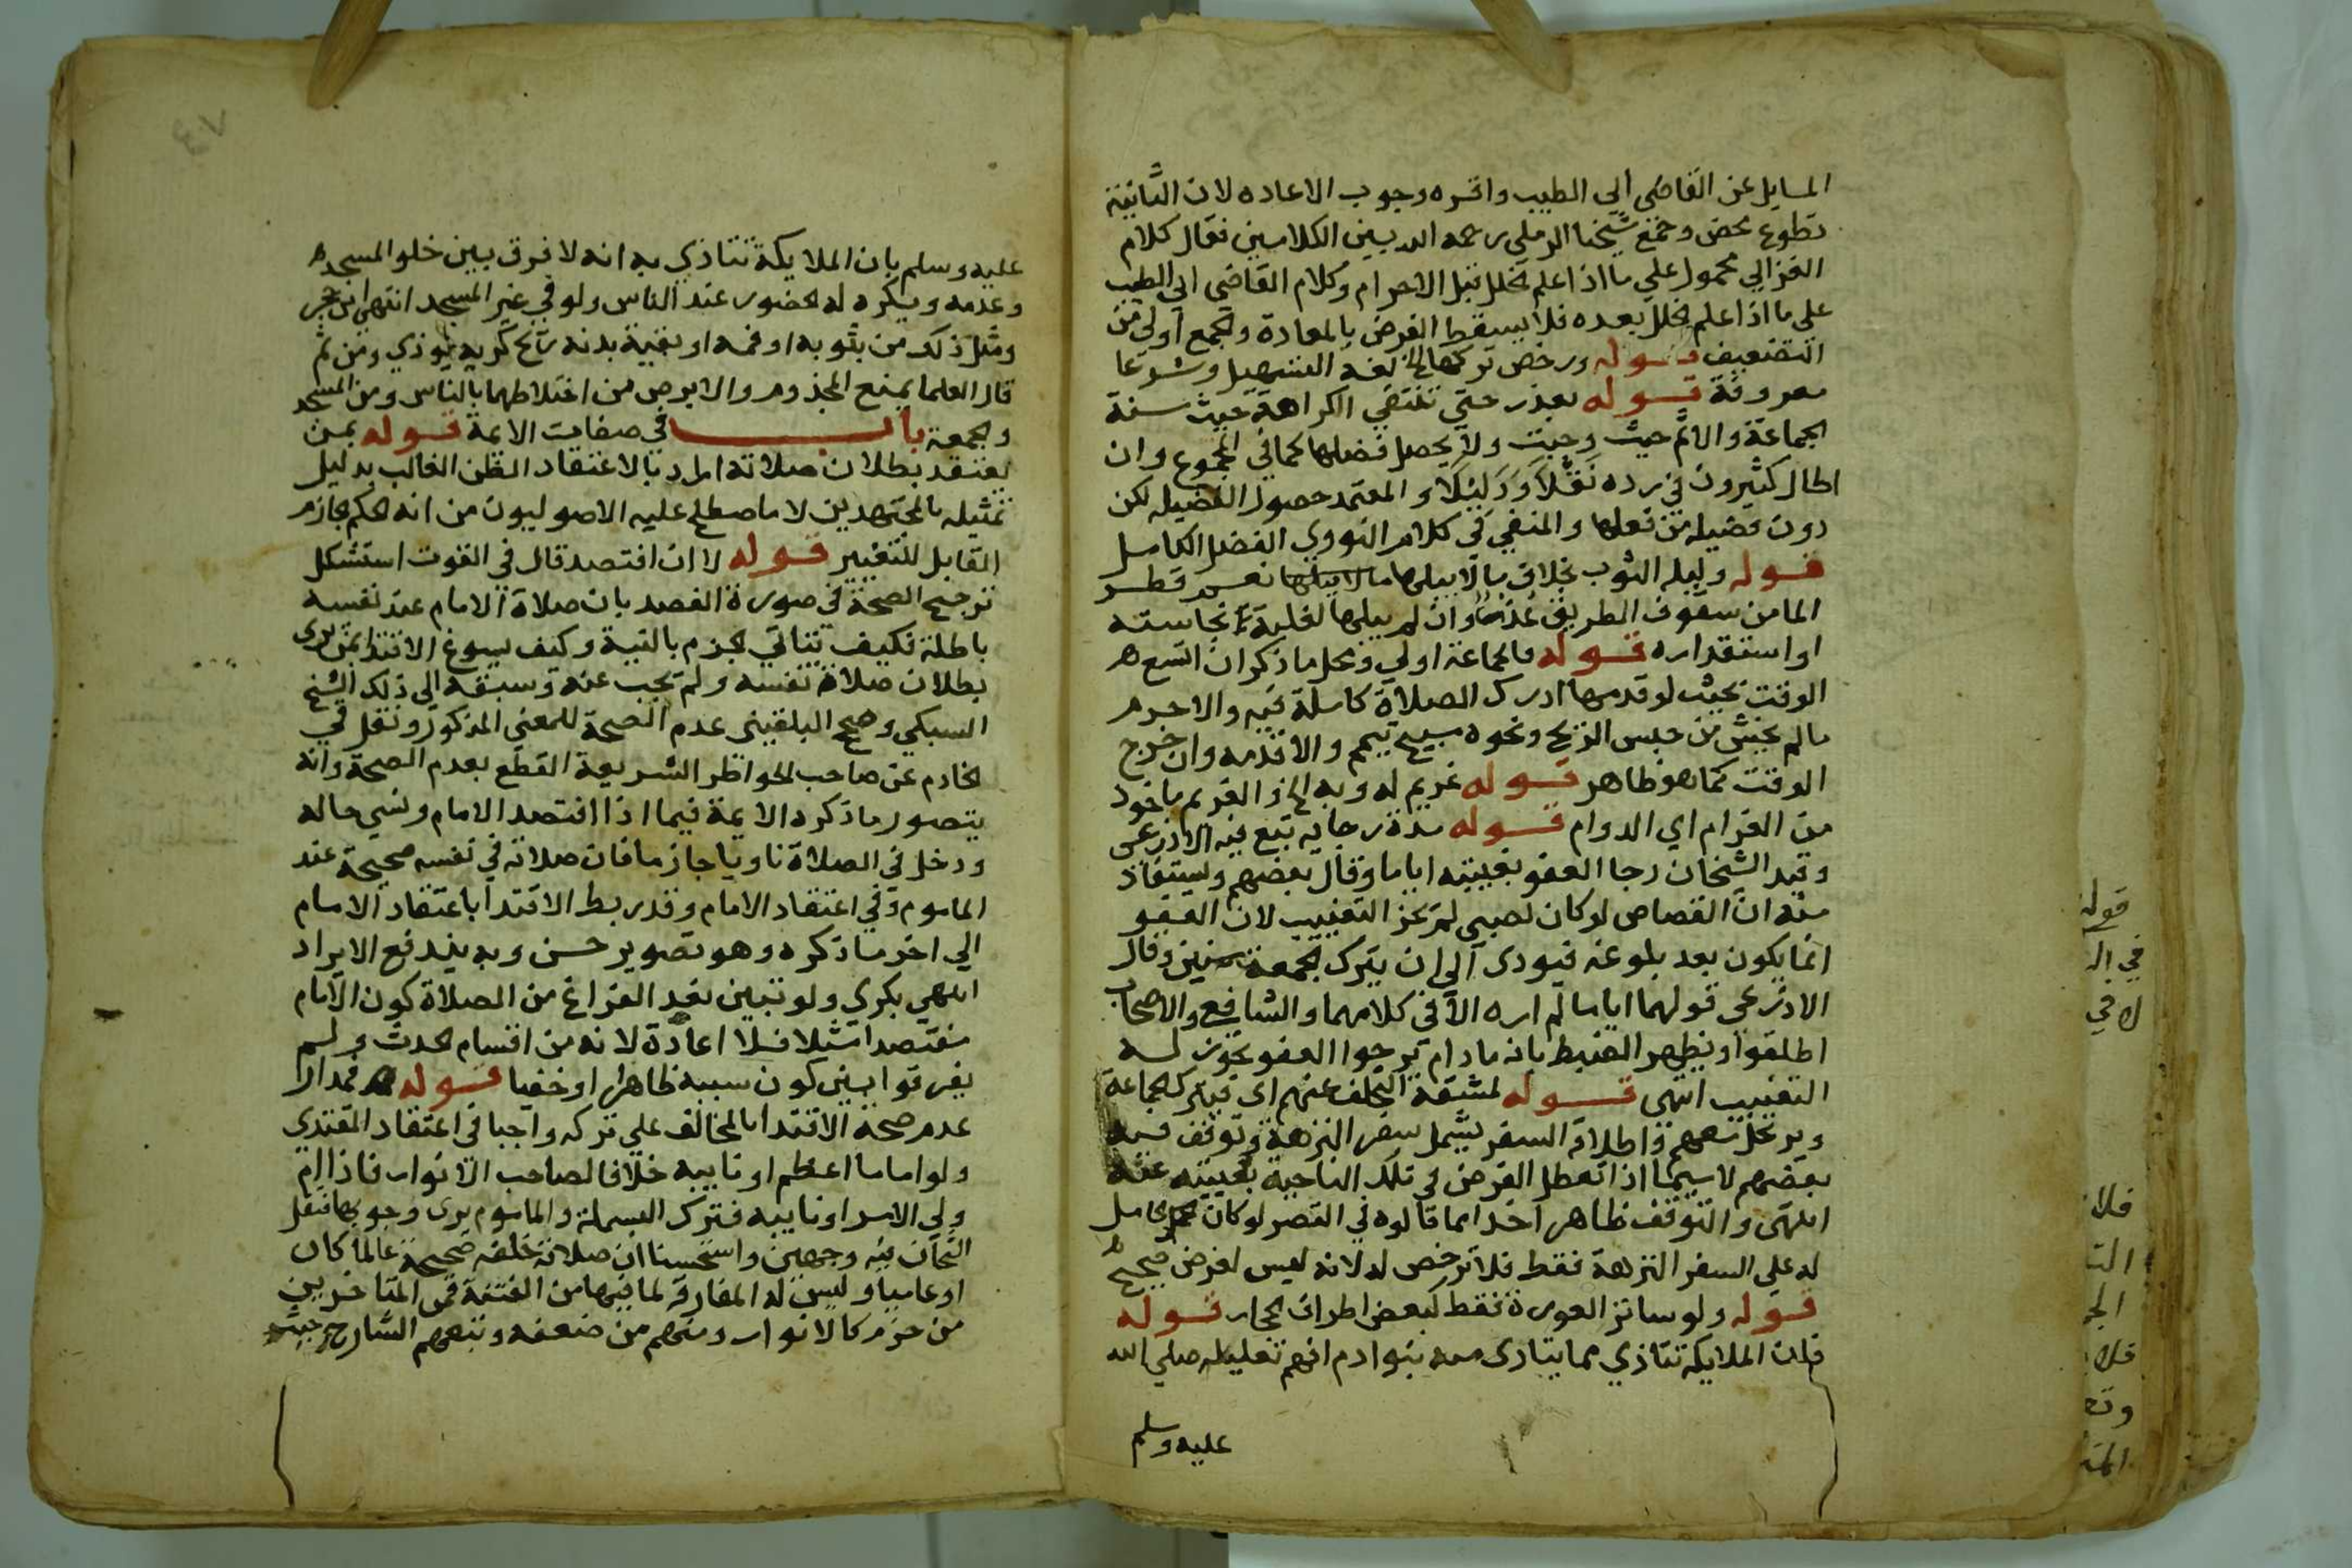 المسايل عن القاضي ابي الطيب واقره وجوب الاعاده لان الثانية
تطوع محض وجمع شيخنا الرملي رحمه الله بين الكلامين فقال كلام
الغزالي محمول علي ما اذا علم الخلل قبل الاحرام وكلام القاضي ابي الطيب
علي ما اذا علم الخلل بعده فلا يسقط الفرض بالمعادة والجمع اولي من
التضعيف قوله ورخص تركها الخ لغه التسهيل وشرعا
معروفة قوله بعذر حتي تنتفي الكراهة حيث سنة
الجماعة والاثم حيث وجبت ولا يحصل فضلها كما في المجموع وان
اطال كثيرون في رده نقلا ودليلا والمعتمد حصول الفضيله لكن
دون فضيله من فعلها والمنفي في كلام النووي الفضل الكامل
قوله وليله الثوب بخلاف ما لا يبلها ما لا يبلها نعم قطر
الما من سقوف الطريق عذر وان لم يبلها لغلبة نجاسته
او استقذاره قوله فالجماعة اولي ومحل ما ذكر ان اتسع
الوقت بحيث لو قدمها ادرك الصلاة كاملة فيه والا حرم
ما لم يخش من حبس الريح ونحوه مبيح تيمم والا قدمه وان خرج
الوقت كما هو ظاهر قوله غريم له وبه الخ والغريم ماخوذ
من الغرام اي الدوام قوله مدة رجايه تبع فيه الاذرعي
وقيد الشيخان رجا العفو بغيبته اياما وقال بعضهم ويستفاد
منه ان القصاص لو كان لصبي لم يجز التغييب لان العفو
انما يكون بعد بلوغه فيودي الي ان يترك الجمعة سنين وقال
الاذرعي قولهما اياما لم اره الا في كلامهما والشافعي والاصحاب
اطلقوا ويظهر الضبط بانه مادام يرجوا العفو يجوز له
التغييب انتهي قوله لمشقة التخلف عنهم اي فيترك الجماعة
ويرتحل معهم واطلاق السفر يشمل سفر النزهة وتوقف فيه
بعضهم لا سيما اذا تعطل الفرض في تلك الناحية بغيبته عنه
انتهي والتوقف ظاهر اخذا مما قالوه في القصر لو كان الحامل
له علي السفر النزهة فقط فلا ترخص له لانه ليس لغرض صحيح
قوله ولو ساتر العورة فقط لبعض اطراف الحجاز قوله
فان الملايكة تتاذي مما يتاذي منه بنو ادم افهم تعليله صلي الله
عليه وسلم
عليه وسلم بان الملايكة تتاذي به انه لا فرق بين خلو المسجد
وعدمه ويكره له الحضور عند الناس ولو في غير المسجد انتهي ابن حجر
ومثل ذلك من بثوبه او فمه او بقية بدنه ريح كريه يوذي ومن ثم
قال العلما بمنع المجذوم والابرص من اختلاطهما بالناس ومن المسجد
والجمعة باب في صفات الايمة قوله بمن
يعتقد بطلان صلاته المراد بالاعتقاد الظن الغالب بدليل
تمثيله بالمجتهدين لا ما صطلح عليه الاصوليون من انه الحكم الجازم
القابل للتغيير قوله لا ان افتصد قال في القوت استشكل
ترجيح الصحة في صورة الفصد بان صلاة الامام عند نفسه
باطلة فكيف يتاتي الجزم بالنية وكيف يسوغ الاقتدا بمن يري
بطلان صلاة نفسه ولم يجب عنه وسبقه الي ذلك الشيخ
السبكي وصحح البلقيني عدم الصحة للمعني المذكور ونقل في
الخادم عن صاحب الحواظر الشريعة القطع بعدم الصحة وانه
يتصور ما ذكره الايمة فيما اذا افتصد الامام ونسي حاله
ودخل في الصلاة ناويا جازما فان صلاته في نفسه صحيحة عند
الماموم وفي اعتقاد الامام وقد ربط الاقتدا باعتقاد الامام
الي اخر ما ذكره وهو تصوير حسن وبه يندفع الايراد
انتهي بكري ولو تبين بعد الفراغ من الصلاة كون الامام
مفتصدا مثلا فلا اعادة لانه من اقسام الحدث ولم
يفرقوا بين كون سببه ظاهرا او خفيا قوله فمدار
عدم صحة الاقتدا بالمخالف علي تركه واجبا في اعتقاد المقتدي
ولو اماما اعظم او نايبه خلافا لصاحب الانوار فاذا ام
ولي الامر او نايبه فترك البسملة والماموم يري وجوبها فنقل
الشيخان فيه وجهين واستحسنا ان صلاته خلفه صحيحة عالما كان
او عاميا وليس له المفارقه لما فيها من الفتنة فمن المتاخرين
من جزم كالانوار ومنهم من ضعفه وتبعهم الشارح حيث